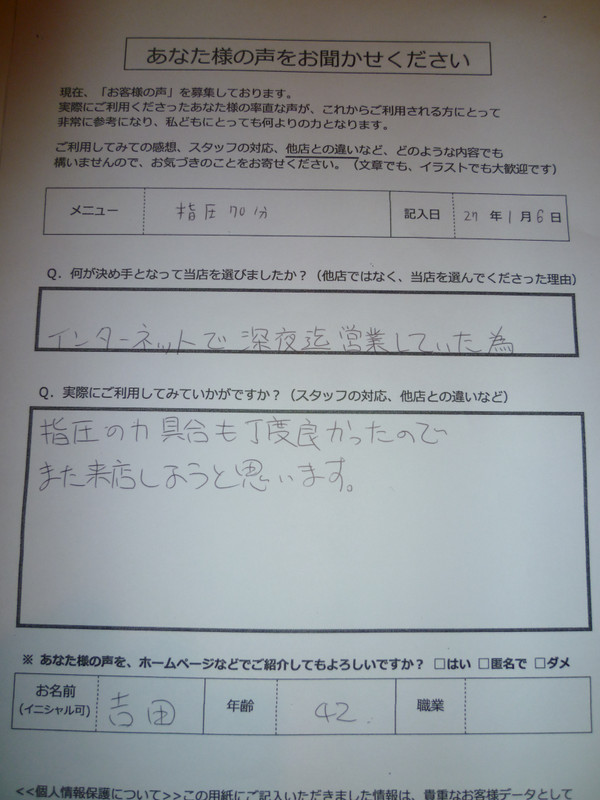 あなた様の声をお聞かせください
現在、「お客様の声」を募集しております。
実際にご利用くださったあなた様の率直な声が、これからご利用される方にとって
非常に参考になり、私どもにとっても何よりの力となります。
ご利用してみての感想、スタッフの対応、他店との違いなど、どのような内容でも
構いませんので、お気づきのことをお寄せください。（文章でも、イラストでも大歓迎です）
メニュー 指圧70分 記入日 27 年 1 月 6 日
Q．何が決め手となって当店を選びましたか？（他店ではなく、当店を選んでくださった理由）
インターネットで深夜迄営業していた為
Q．実際にご利用してみていかがですか？（スタッフの対応、他店との違いなど）
指圧の力具合も丁度良かったので
また来店しようと思います。
※ あなた様の声を、ホームページなどでご紹介してもよろしいですか？ □はい □匿名で □ダメ
お名前
(イニシャル可) 吉田 年齢 42. 職業
<<個人情報保護について>>この用紙にご記入いただきました情報は、貴重なお客様データとして